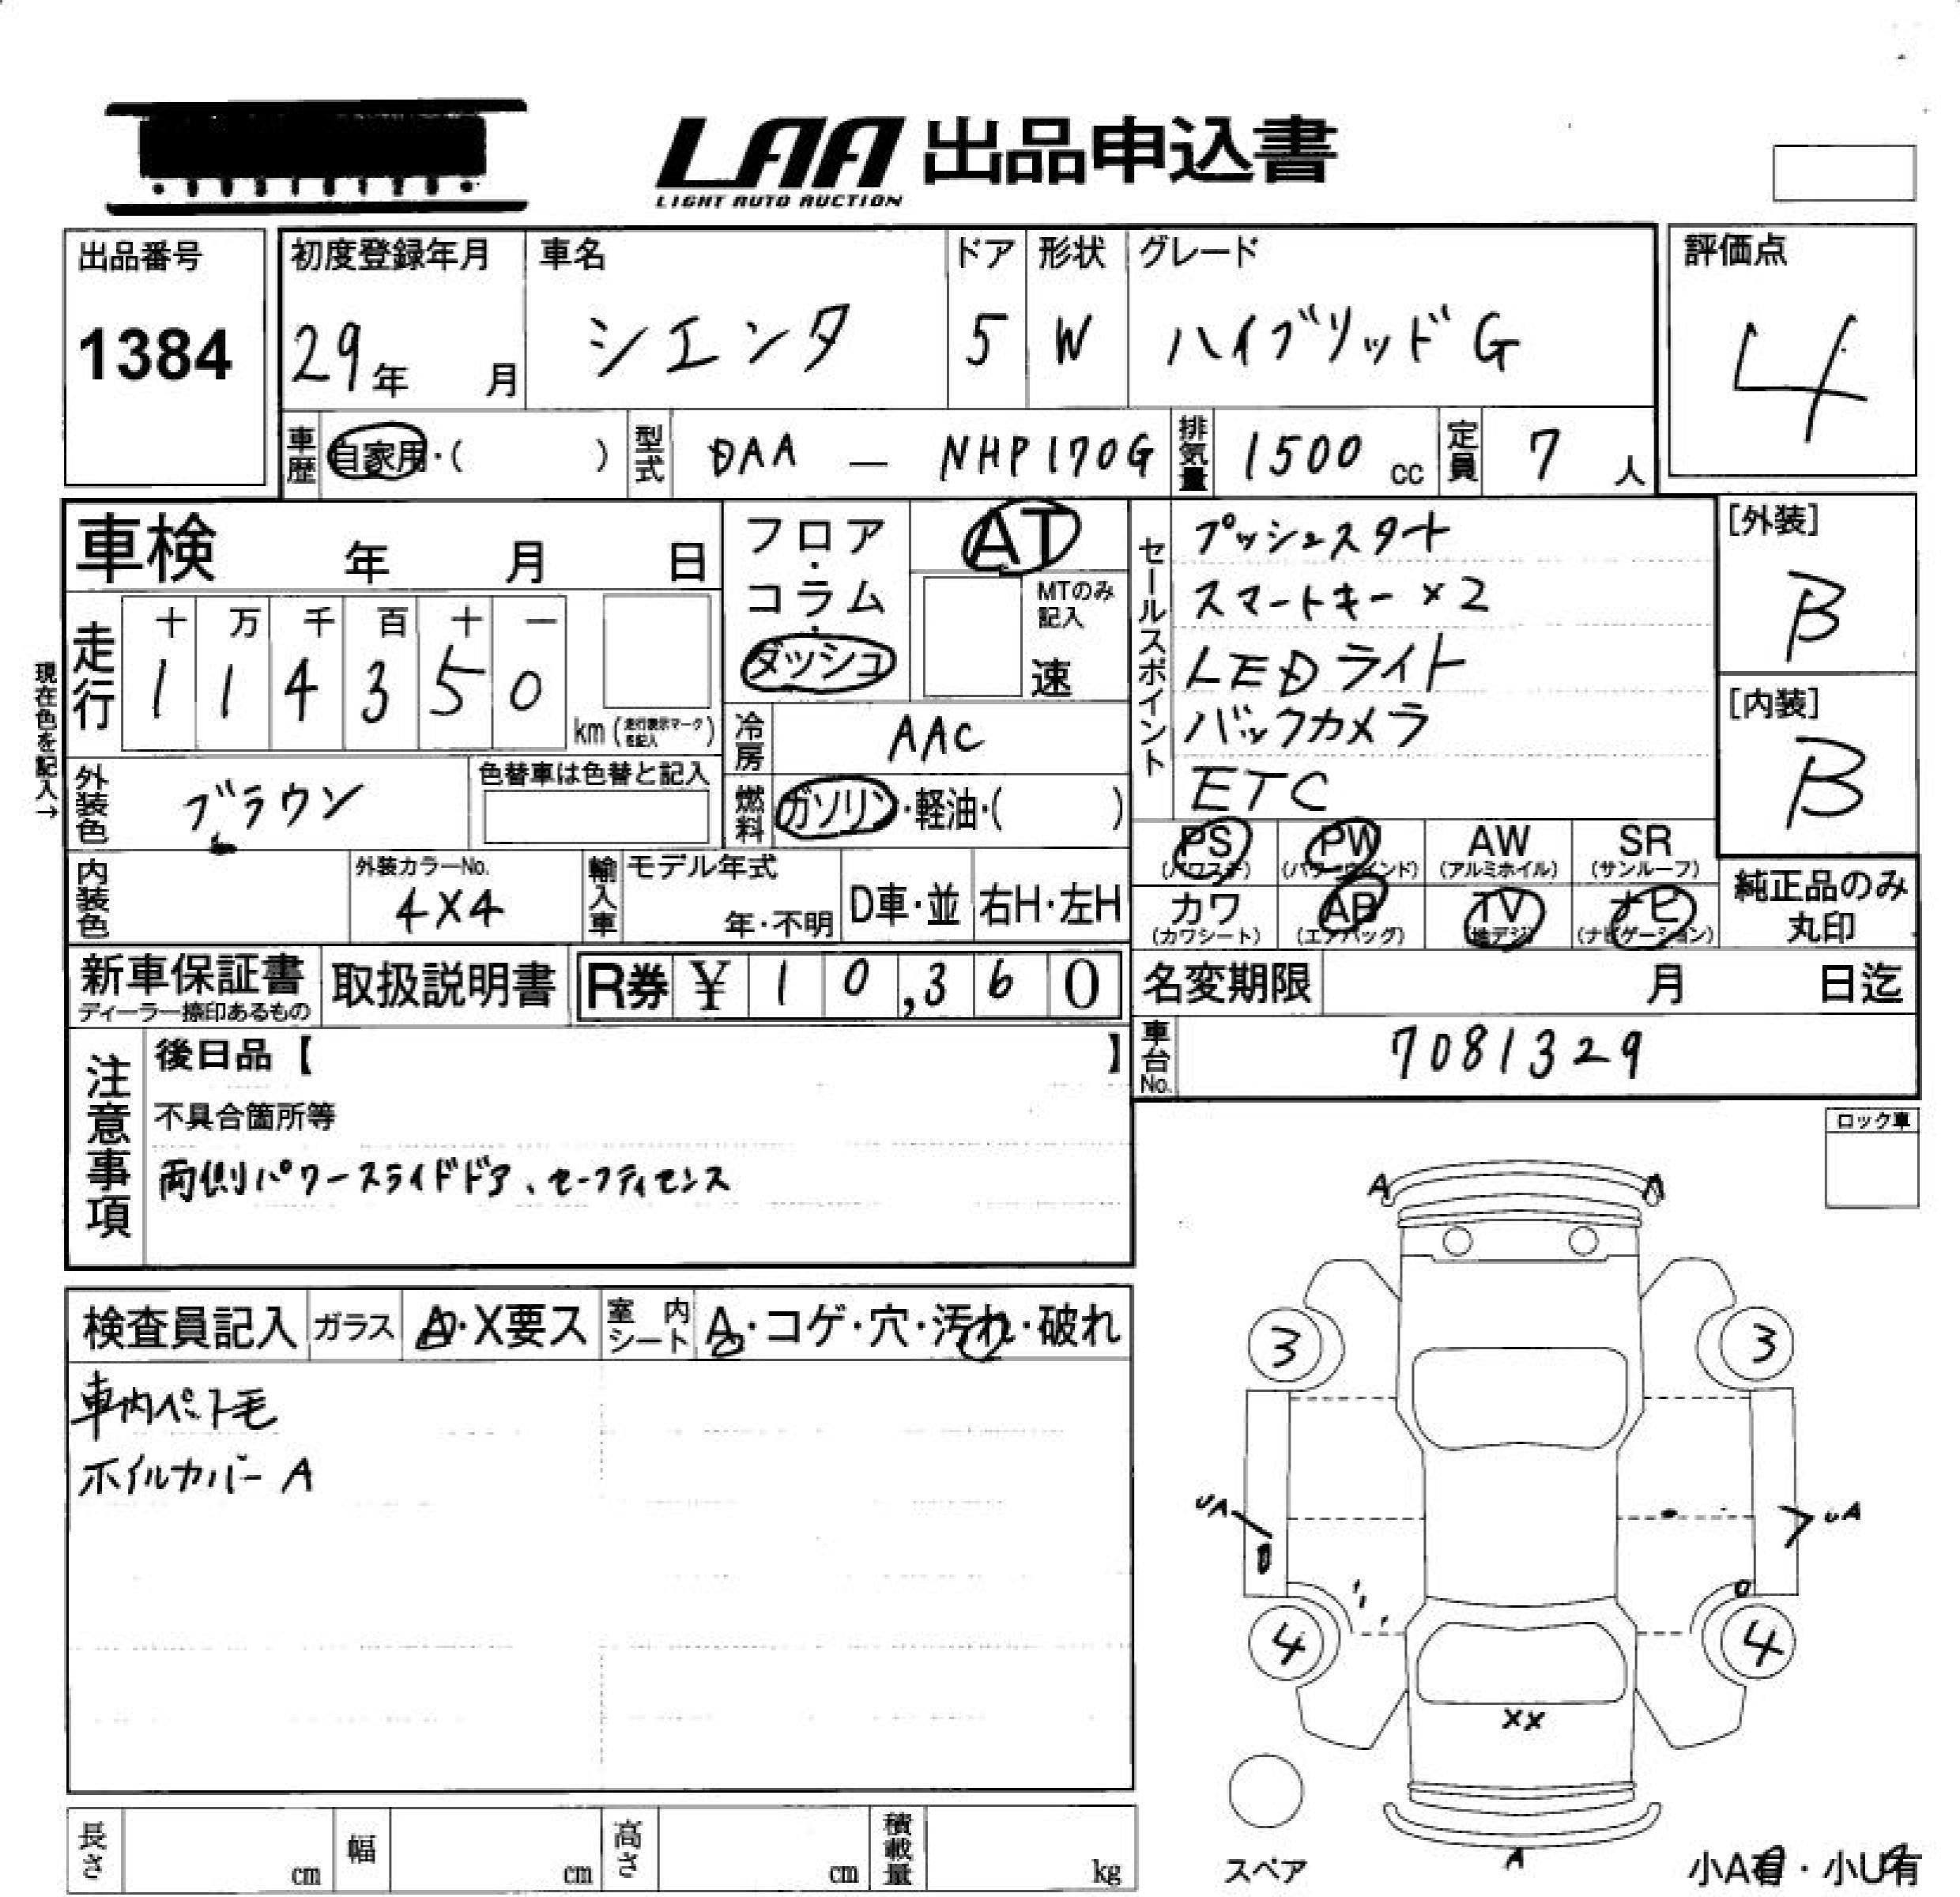 LAA 出品申込書
LIGHT AUTO AUCTION
出品番号
1384
初度登録年月
29年 月
車名
シエンタ
ドア
5
形状
W
グレード
ハイブリッドG
評価点
4
車歴 自家用・( )
型式 DAA — NHP170G
排気量 1500 cc
定員 7 人
車検 年 月 日
現在色を記入→
走行
十 万 千 百 十 一
1 1 4 3 5 0
km (走行表示マークを記入)
外装色 ブラウン
色替車は色替と記入
内装色
外装カラーNo.
4X4
輸入車
モデル年式
年・不明
D車・並
右H・左H
フロア・コラム・ダッシュ
AT
MTのみ記入
速
冷房 AAC
燃料 ガソリン・軽油・( )
セールスポイント
プッシュスタート
スマートキー×2
LEDライト
バックカメラ
ETC
[外装]
B
[内装]
B
PS (パワステ)
PW (パワーウインド)
AW (アルミホイル)
SR (サンルーフ)
カワ (カワシート)
AB (エアバッグ)
TV (地デジ)
ナビ (ナビゲーション)
純正品のみ丸印
新車保証書
ディーラー捺印あるもの
取扱説明書
R券 ¥ 10,360
名変期限 月 日迄
車台No. 7081329
注意事項
後日品【 】
不具合箇所等
両側パワースライドドア、セーフティセンス
ロック車
検査員記入
ガラス A・X要ス
室内シート A・コゲ・穴・汚れ・破れ
車内ペット毛
ホイルカバー A
A A
3 3
UA UA
4 4
XX
A
スペア
小A有・小U有
長さ cm
幅 cm
高さ cm
積載量 kg